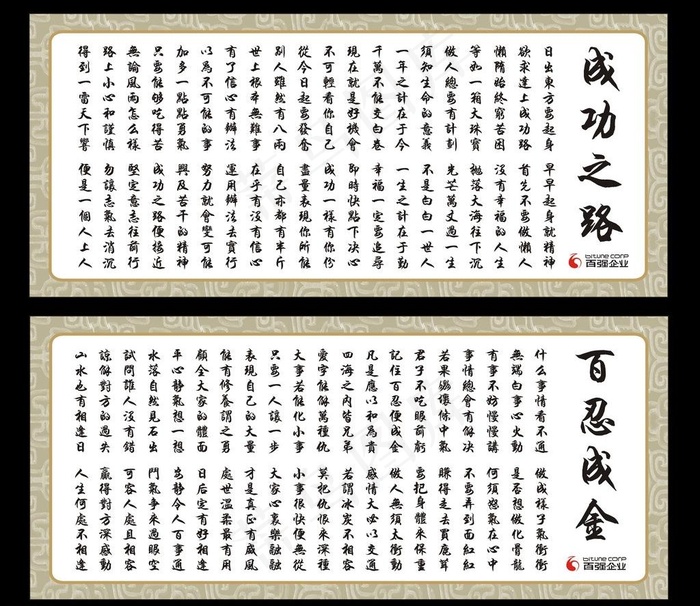 成功之路
日出東方要起身 早早起身就精神
欲求達上成功路 首先不要做懶人
懶隋始終窮苦困 沒有幸福的人生
等如一箱大珠寶 拋落大海往下沉
做人總要有計劃 光芒萬丈過一生
須知生命的意義 不是白白一世人
一年之計在于今 一生之計在于勤
千萬不能交白卷 幸福一定要追尋
現在就是好機會 即時快點下決心
不可輕看你自己 成功一樣有你份
從今日起要發奮 盡量表現你所能
別人雖然有八兩 自己亦都有半斤
世上根本無難事 在乎有沒有信心
有了信心有辦法 運用辦法去實行
以為不可能的事 努力就會變可能
加多一點點勇氣 興及苦干的精神
只要能够吃得苦 成功之路便接近
無論風雨怎么樣 堅定意志往前行
路上小心和謹慎 勿讓志氣去消沉
得到一雷天下響 便是一個人上人
bitune corp
百强企业
百忍成金
什么事情看不通 做成樣子氣衝衝
無端白事心火動 是否想做化骨龍
有事不妨慢慢講 何須怒氣在心中
事情總會有解決 不要弄到面紅紅
若果繼續條中氣 賺得走去買鹿茸
君子不吃眼前虧 要把身體來保重
記住百忍便成金 做人無須太衝動
凡是應以和為貴 感情大必以交通
四海之內皆兄弟 若謂冰炭不相容
愛字能解萬種仇 莫把仇恨來深種
大事若能化小事 小事很快便無從
只要一人讓一步 大家心裏樂融融
表現自己的大量 才是真正有威風
能有修養謂之勇 處世溫柔最有用
顧全大家的體面 日后定有好相逢
平心靜氣想一想 安靜令人百事通
水落自然見石出 鬥氣爭來過眼空
試問誰人沒有錯 可容人處且相容
諒解對方的過失 贏得對方深感動
山水也有相逢日 人生何處不相逢
bitune corp
百强企业